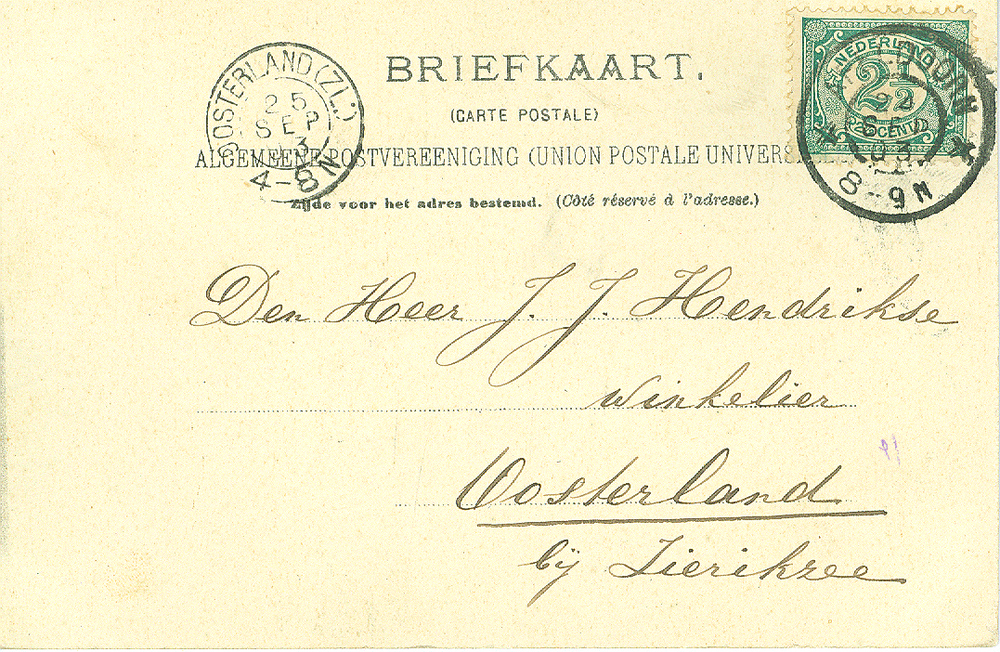 BRIEFKAART.
(CARTE POSTALE)
ALGEMEENE POSTVEREENIGING (UNION POSTALE UNIVERS
Zijde voor het adres bestemd. (Côté réservé à l'adresse.)
OOSTERLAND (ZL:)
25
SEP
3
4-8N
NEDERLAND
2½
CENT
8-9N
Den Heer J. J. Hendrikse
Winkelier
Oosterland
bij Zierikzee